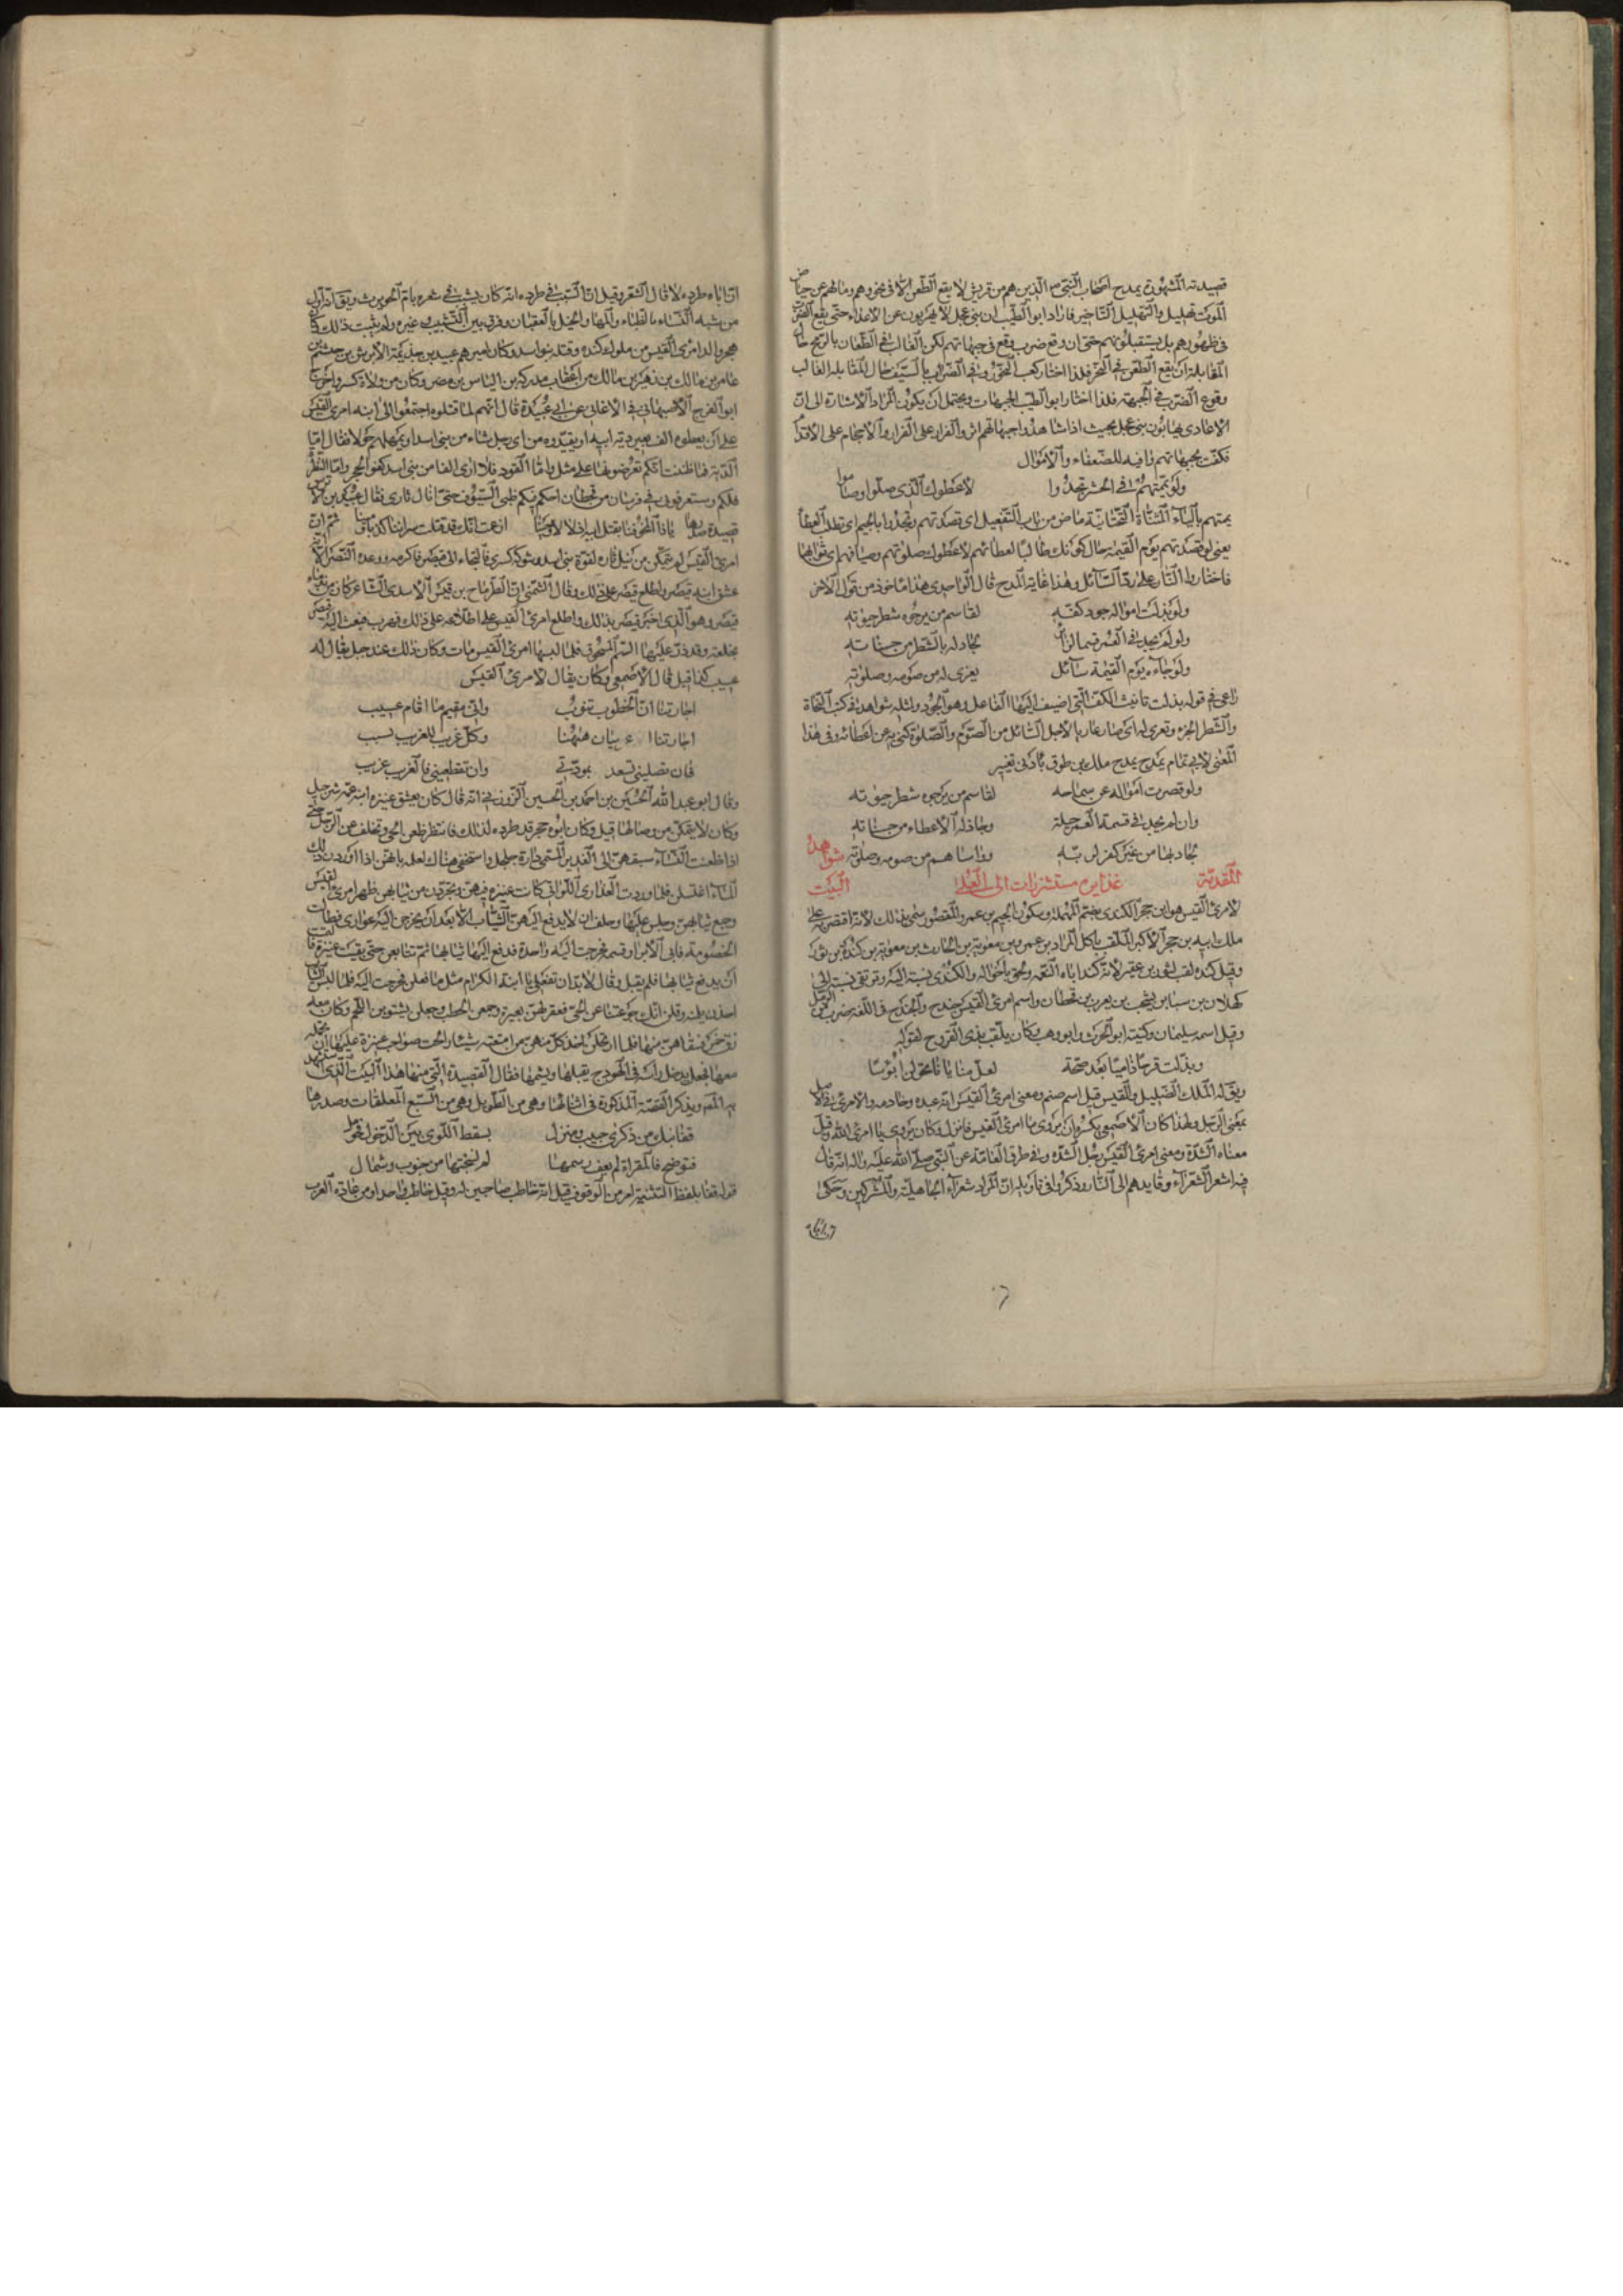 قصيدته المشهورة يمدح اصحاب النبي الذين هم من قريش لا يقع الطعن الا في نحورهم وما لهم عن حياض
الموت تهليل والتهليل التاخير فاراد ابو الطيب ان بني عجل لا يهربون عن الاعداء حتى يقع الضرب
في ظهورهم بل يستقبلونهم حتى ان وقع ضرب وقع في جبهاتهم لكن الغالب في الطعان بالرمح حال
المقابلة ان يقع الطعن في النحر فلذا اختار كعب النحور وفي الضراب بالسيف حال المقابلة الغالب
وقوع الضرب في الجبهة فلذا اختار ابو الطيب الجبهات ويحتمل ان يكون المراد الاشارة الى ان
الاعادي يهابون بني عجل بحيث اذا شاهدوا جبهاتهم اثروا الفرار على القرار والاحجام على الاقدام
فكفت بجبهاتهم
ولو يممتهم في الحشر تجدوا لاعطوك الذي صلوا وصاموا
يممتهم بالياء المثناة التحتانية ماض من باب التفعيل اي قصدتهم وتجدوا بالجيم اي تطلب العطاء
يعني لو قصدتهم يوم القيمة حال كونك طالبا لعطائهم لاعطوك صلوتهم وصيامهم اي ثوابهما
فاختاروا النار على رد السائل وهذا غاية المدح قال الواحدي هذا ماخوذ من قول الاخر
ولو بذلت امواله جود كفه لقاسم من يرجوه شطر حيوته
ولو لم يجد في العمر قسما لزائر لجاد له بالشطر من حسناته
ولو جاءه يوم القيمة سائل يعرى له من صومه وصلوته
راعى في قوله بذلت تانيث الكف التي اضيف اليها الفاعل وهو الجود وامثله شواهد في كتب النحاة
والشطر الجزء وتعرى له اي صار عاريا لاجل السائل من الصوم والصلوة كنى به عن اعطائه وفي هذا
المعنى لابي تمام يمدح ملك بن طوق بادنى تغيير
ولو قصرت امواله عن سماحه لقاسم من يرجوه شطر حيوته
وان لم يجد في قسمة العمر حيلة وجاز له الاعطاء من حسناته
لجاد بها من غير كفر لربه وواساهم من صومه وصلوته شواهد
المقدمة غدائره مستشزرات الى العلى البيت
لامرئ القيس هو ابن حجر الكندي بضم المهملة وسكون الجيم بن عمرو المقصور سمي بذلك لانه اقتصر به على
ملك ابيه بن حجر الاكبر الملقب باكل المرار بن عمرو بن معوية بن الحارث بن معوية بن كندة بن ثور
وقيل كنده لقب لثور بن عفير لانه كند اباه النعمه ولحق باخواله والكندي نسبة اليه وترتقي نسبته الى
كهلان بن سبا بن يشجب بن يعرب بن قحطان واسم امرئ القيس جندح والجندح في اللغه ضرب من الرمل
وقيل اسمه سليمان وكنيته ابو الحرث وابو وهب وكان يلقب بذي القروح لقوله
وبدلت قرحا داميا بعد صحة لعل منايانا تحولن ابؤسا
ويق له الملك الضليل والقيس قيل اسم صنم ومعنى امرئ القيس انه عبده وخادمه والامرئ في الاصل
بمعنى الرجل ولهذا كان الاصمعي يكره ان يروى يا امرئ القيس فانزل وكان يروى يا امرئ الله وقيل
معناه الشدة ومعنى امرئ القيس رجل الشدة وفي طرق العامة عن النبي صلى الله عليه واله انه قال
فيه اشعر الشعراء وقايدهم الى النار وذكروا في تاويله ان المراد شعراء الجاهلية والمشركين وحكي
ان اباه طرده لما قال الشعر وقيل ان السبب في طرده انه كان يشبب في شعره بام الحويرث ويق انه اول
من شبه النساء بالظباء والمها والخيل بالعقبان وفرق بين التشبيب وغيره ولم يثبت ذلك كان
حجر والد امرئ القيس من ملوك كنده وقتله بنو اسد وكان اميرهم عبيد بن جذيمة الابرش بن جشم بن
عامر بن مالك بن زهير بن مالك من اعقاب مدركه بن الياس بن مضر وكان من ولاة كسرى واخرج
ابو الفرج الاصبهاني في الاغاني عن ابي عبيدة قال انهم لما قتلوه اجتمعوا الى ابنه امرئ القيس
على ان يعطوه الف بعير دية ابيه او يقيدوه من اي رجل شاء من بني اسد او يمهلهم حولا فقال اما
الدية فما ظننت انكم تعرضونها على مثلي واما القود فلا ارى الفا من بني اسد كفوا لحجر واما النظرة
فلكم وستعرفوني في فرسان من قحطان احكم فيكم ظبى السيوف حتى انال ثاري فقال عبيد بن الابرص
قصيدة صدرها يا ذا المخوفنا بقتل ابيه اذلالا وحينا ازعمت انك قد قتلت سراتنا كذبا ومينا ثم ان
امرئ القيس لم يتمكن من نيل ثاره لقوة بني اسد وشوكة كسرى فالتجاء الى قيصر فاكرمه ووعده النصر الا انه
عشق ابنة قيصر واطلع قيصر على ذلك وقال الشمني ان الطرماح بن قيس الاسدي الشاعر كان من ندماء
قيصر وهو الذي اخبر قيصر بذلك واطلع امرئ القيس على اطلاعه على ذلك فهرب فبعث اليه قيصر
بخلعة وقد ذر عليها السم المسحوق فلما لبسها امرئ القيس مات وكان ذلك عند جبل يقال له
عسيب كما قيل قال الاصمعي وكان يقال لامرئ القيس
اجارتنا ان الخطوب تنوب واني مقيم ما اقام عسيب
اجارتنا انا غريبان ههنا وكل غريب للغريب نسيب
فان تصليني تسعد بمودتي وان تقطعيني فالغريب غريب
وقال ابو عبد الله الحسين بن احمد بن الحسين الزوزني انه قال كان يعشق عنيزه ابنة عمه شرحبيل
وكان لا يتمكن من وصالها قيل وكان ابوه حجر قد طرده لذلك فانتظر ظعن الحي وتخلف عن الرجل حتى
اذا ظعنت النساء سبقهن الى الغدير المسمى دارة جلجل واستخفى هناك لعلمه بانهن اذا اوردن ذلك
الماء اغتسلن فلما وردت العذارى اللواتي كانت عنيزه فيهن وتجردن من ثيابهن ظهر امرئ القيس
وجمع ثيابهن وجلس عليها وحلف ان لا يدفع اليهن الثياب الا بعد ان يخرجن اليه عوارى فطالت
الخصومة فابى الا ابرار قسمه فخرجت اليه واحدة فدفع اليها ثيابها ثم تتابعن حتى بقيت عنيزة فابت
ان يدفع ثيابها فلم يقبل وقال لابد ان تفعلي يا ابنة الكرام مثل ما فعلن فخرجت اليه فلما لبسن الثياب
اخذن يلمنه وقلن انك جوعتنا عن الحي فعقر لهن بعيره وجمعن الحطب وجعلن يشتوين اللحم وكان معه
زق خمر فسقاهن منها فلما ارتحلن اخذ كل منهن من امتعته شيئا والحت صواحب عنيزة عليها ان تحمله
معها فجعل يدخل راسه في الهودج يقبلها ويشمها فقال القصيدة التي منها هذا البيت الذي استشهد
به المص ويذكر القصة المذكورة في اثنائها وهي من الطويل وهي من السبع المعلقات وصدرها
قفا نبك من ذكرى حبيب ومنزل بسقط اللوى بين الدخول فحومل
فتوضح فالمقراة لم يعف رسمها لما نسجتها من جنوب وشمال
قوله قفا بلفظ التثنية امر من الوقوف قيل انه خاطب صاحبين له وقيل خاطب واحدا ومن عادة العرب